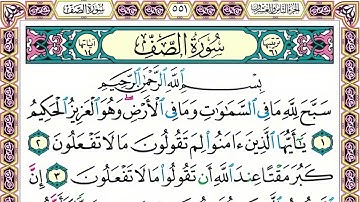 سُورَةُ الصَّفِّ ٥٥١ الجزء الثامن والعشرون
سُورَةُ الصَّفِّ
بِسْمِ ٱللَّهِ ٱلرَّحْمَٰنِ ٱلرَّحِيمِ
سَبَّحَ لِلَّهِ مَا فِي ٱلسَّمَٰوَٰتِ وَمَا فِي ٱلْأَرْضِ ۖ وَهُوَ ٱلْعَزِيزُ ٱلْحَكِيمُ
١ يَٰٓأَيُّهَا ٱلَّذِينَ ءَامَنُوا۟ لِمَ تَقُولُونَ مَا لَا تَفْعَلُونَ ٢
كَبُرَ مَقْتًا عِندَ ٱللَّهِ أَن تَقُولُوا۟ مَا لَا تَفْعَلُونَ ٣ إِنَّ